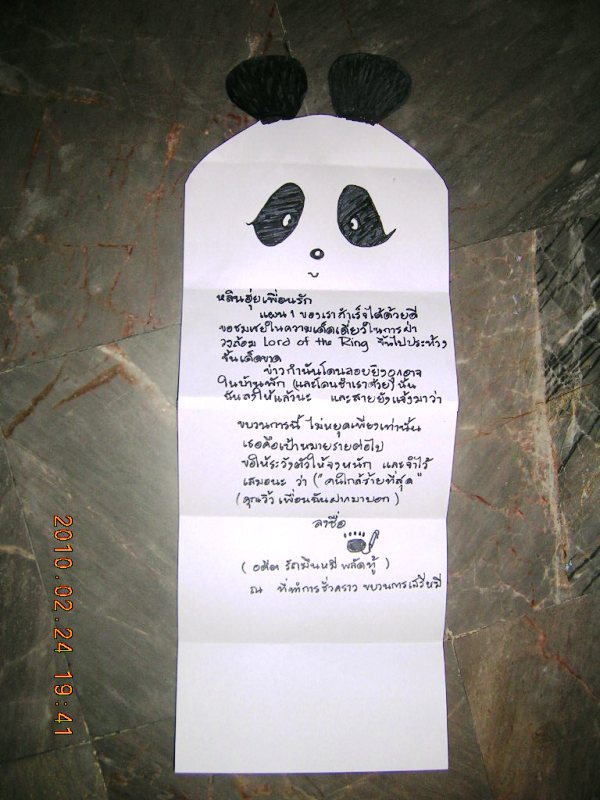 หลินฮุ่ยเพื่อนรัก
แผน 1 ของเราสำเร็จได้ด้วยดี
ขอชมเชยในความเด็ดเดี่ยวในการฝ่า
วงล้อม Lord of the Ring ขึ้นไปประท้วง
ข่าวกำนันโดนลอบยิงอุกอาจ
ในบ้านพัก (และโดนซ้ำเราด้วย) นั้น
ฉันลงให้แล้วนะ และสายยังแจ้งมาว่า
ขบวนการนี้ ไม่หยุดเพียงเท่านั้น
เธอคือเป้าหมายรายต่อไป
ขอให้ระวังตัวให้จงหนัก และจำไว้
เสมอนะ ว่า ("คนใกล้ร้ายที่สุด"
(คุณวิว์ เพื่อนฉันฝากมาบอก)
ลงชื่อ
ณ ที่ทำการชั่วคราว ขบวนการเสรีหมี
2010.02.24 19:41